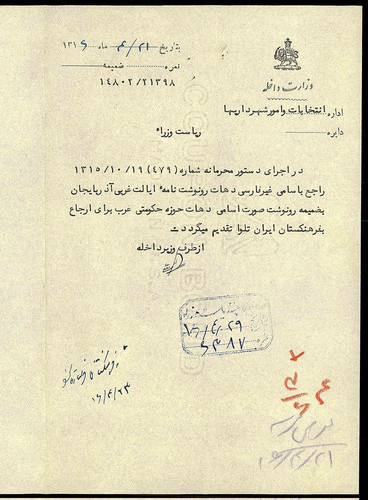 وزارت داخله
اداره انتخابات و امور شهرداریها
دایره
بتاریخ ۲۱/۴/ ماه ۱۳۱۶
نمره ضمیمه
۱۴۸۰۲/۲۱۳۹۸
ریاست وزراء
در اجرای دستور محرمانه شماره (۴۷۹) ۱۳۱۵/۱۰/۱۹
راجع باسامی غیرفارسی دهات رونوشت نامه ایالت غربی آذربایجان
بضمیمه رونوشت صورت اسامی دهات حوزه حکومتی عرب برای ارجاع
بفرهنگستان ایران تلوا تقدیم میگردد
از طرف وزیر داخله
۱۶/۴/۲۹
۵۳۸۷
۱۶/۴/۲۳
۱۶/۴/۲۱